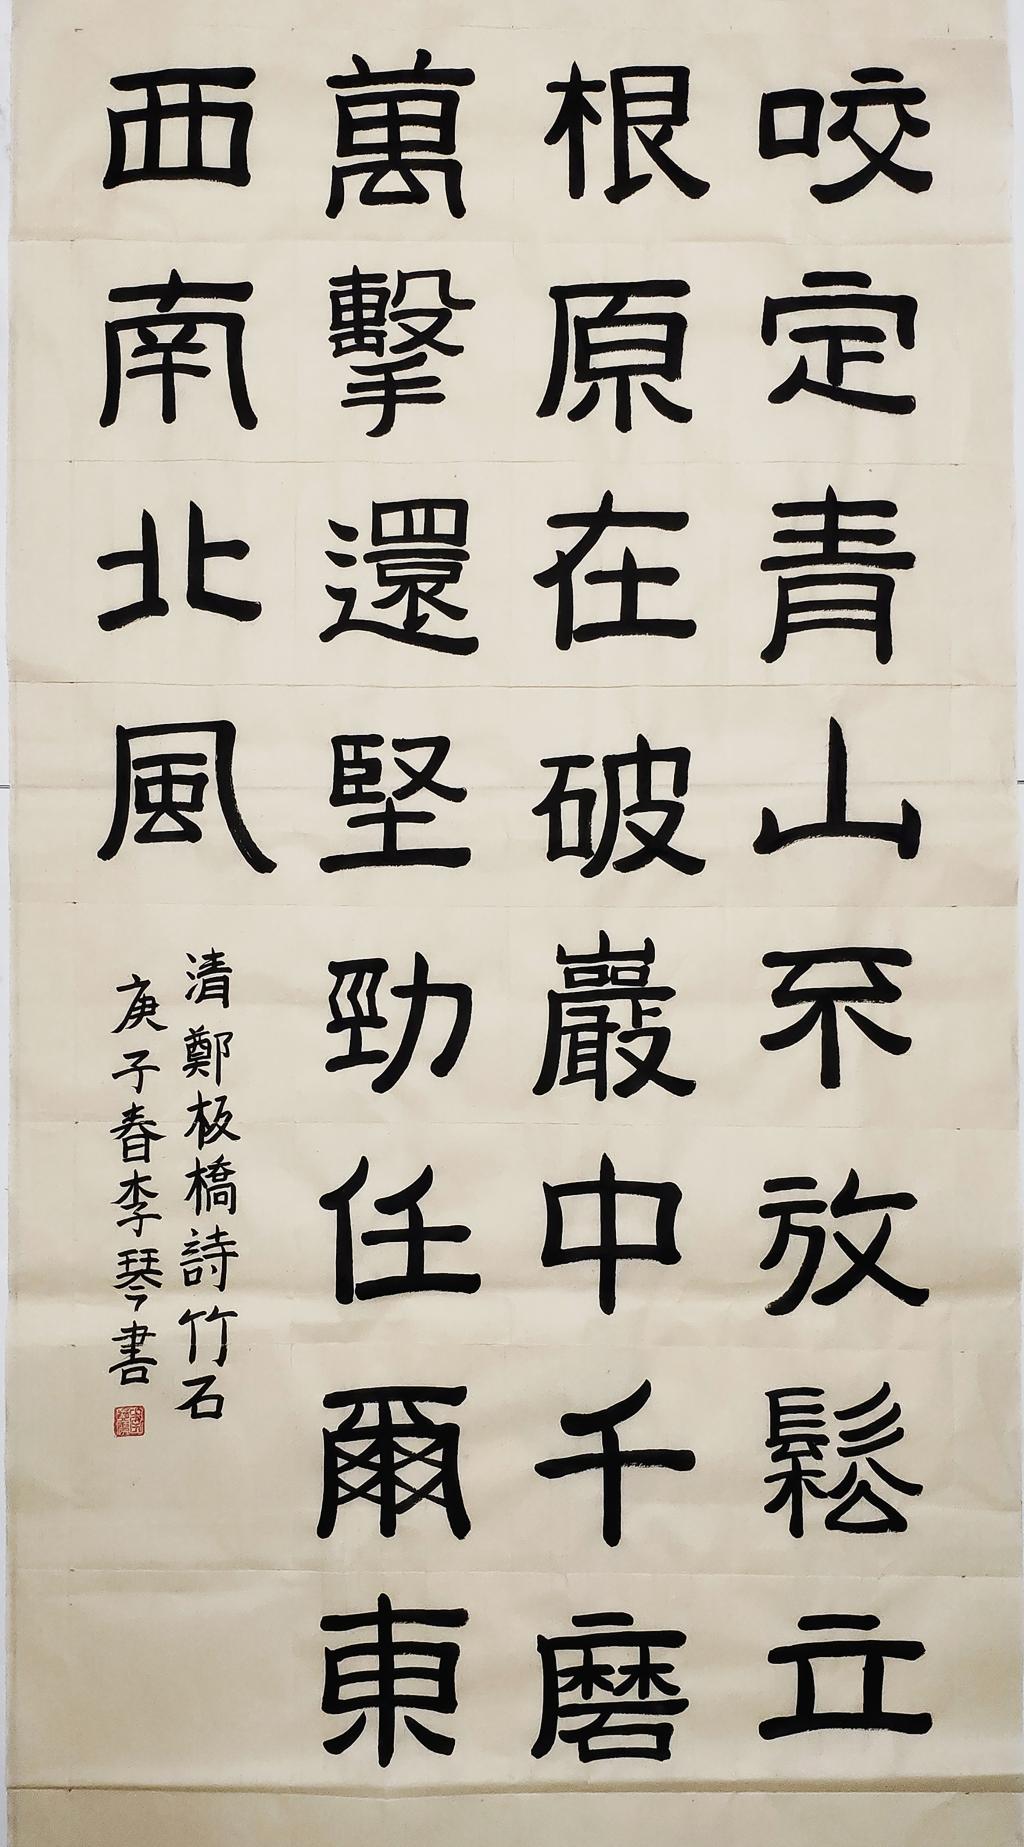 咬定青山不放鬆立
根原在破巖中千磨
萬擊還堅勁任爾東
西南北風
清鄭板橋詩竹石
庚子春李琴書